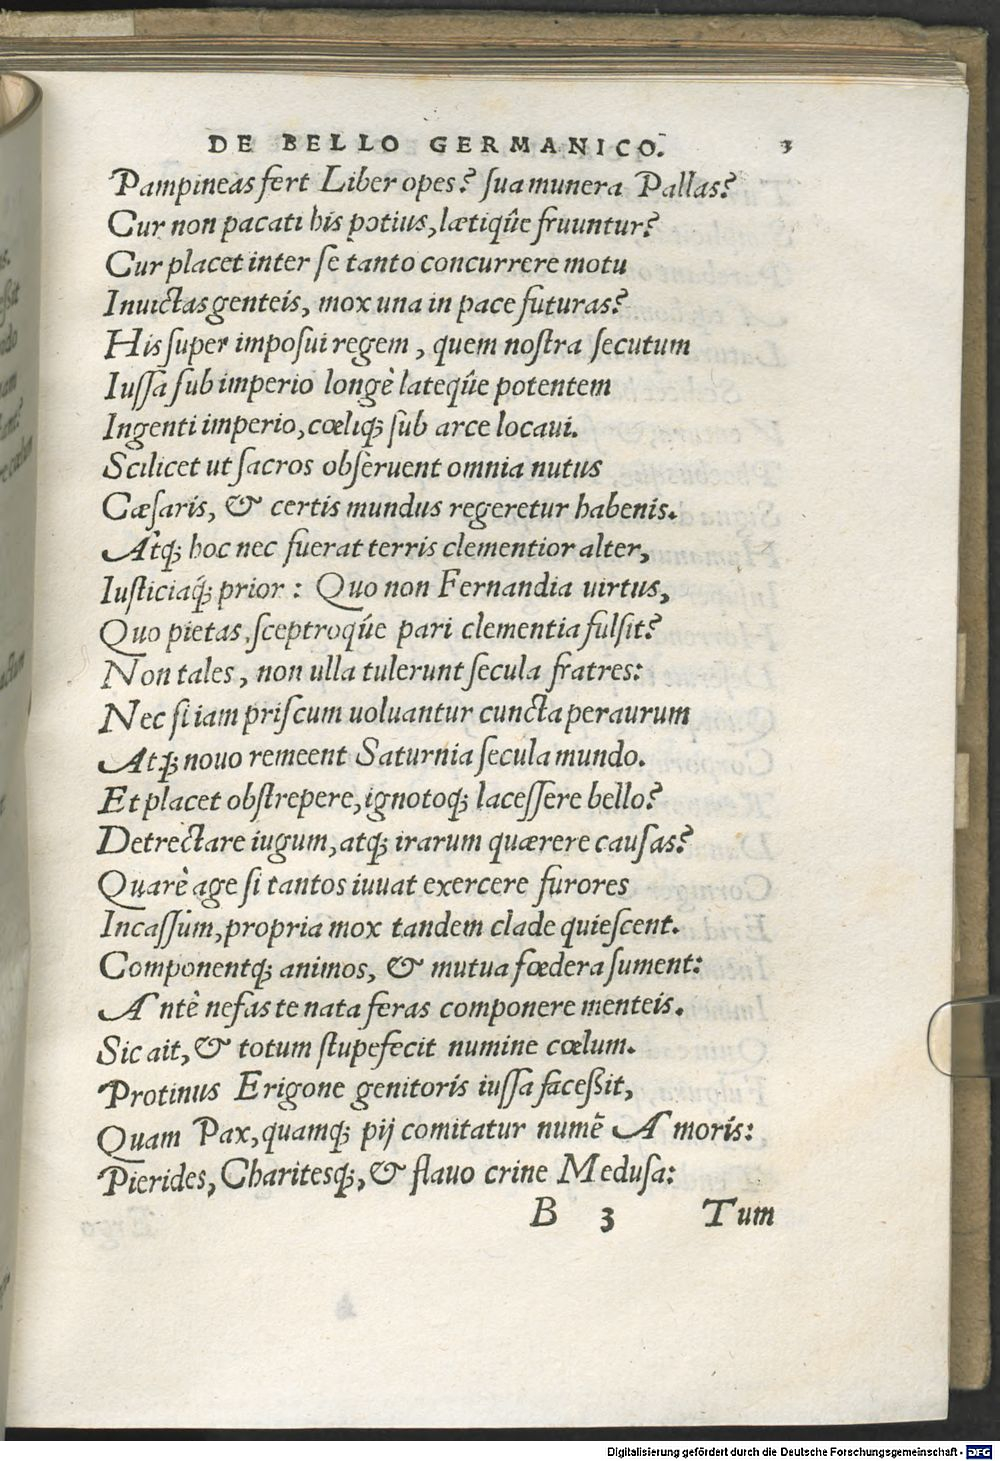 DE BELLO GERMANICO. 3
Pampineas fert Liber opes? sua munera Pallas?
Cur non pacati his potius, lætiq́ue fruuntur?
Cur placet inter se tanto concurrere motu
Inuictas genteis, mox una in pace futuras?
His super imposui regem, quem nostra secutum
Iussa sub imperio longè lateq́ue potentem
Ingenti imperio, cœliq; sub arce locaui.
Scilicet ut sacros obseruent omnia nutus
Cæsaris, & certis mundus regeretur habenis.
Atq; hoc nec fuerat terris clementior alter,
Iusticiaq́; prior: Quo non Fernandia uirtus,
Quo pietas, sceptroq́ue pari clementia fulsit?
Non tales, non ulla tulerunt secula fratres:
Nec si iam priscum uoluantur cuncta per aurum
Atq; nouo remeent Saturnia secula mundo.
Et placet obstrepere, ignotoq; lacessere bello?
Detrectare iugum, atq; irarum quærere causas?
Quarè age si tantos iuuat exercere furores
Incassùm, propria mox tandem clade quiescent.
Componentq; animos, & mutua fœdera sument:
Antè nefas te nata feras componere menteis.
Sic ait, & totum stupefecit numine cœlum.
Protinus Erigone genitoris iussa faceßit,
Quam Pax, quamq; pij comitatur numē Amoris:
Pierides, Charitesq;, & flauo crine Medusa:
B 3 Tum
Digitalisierung gefördert durch die Deutsche Forschungsgemeinschaft - DFG